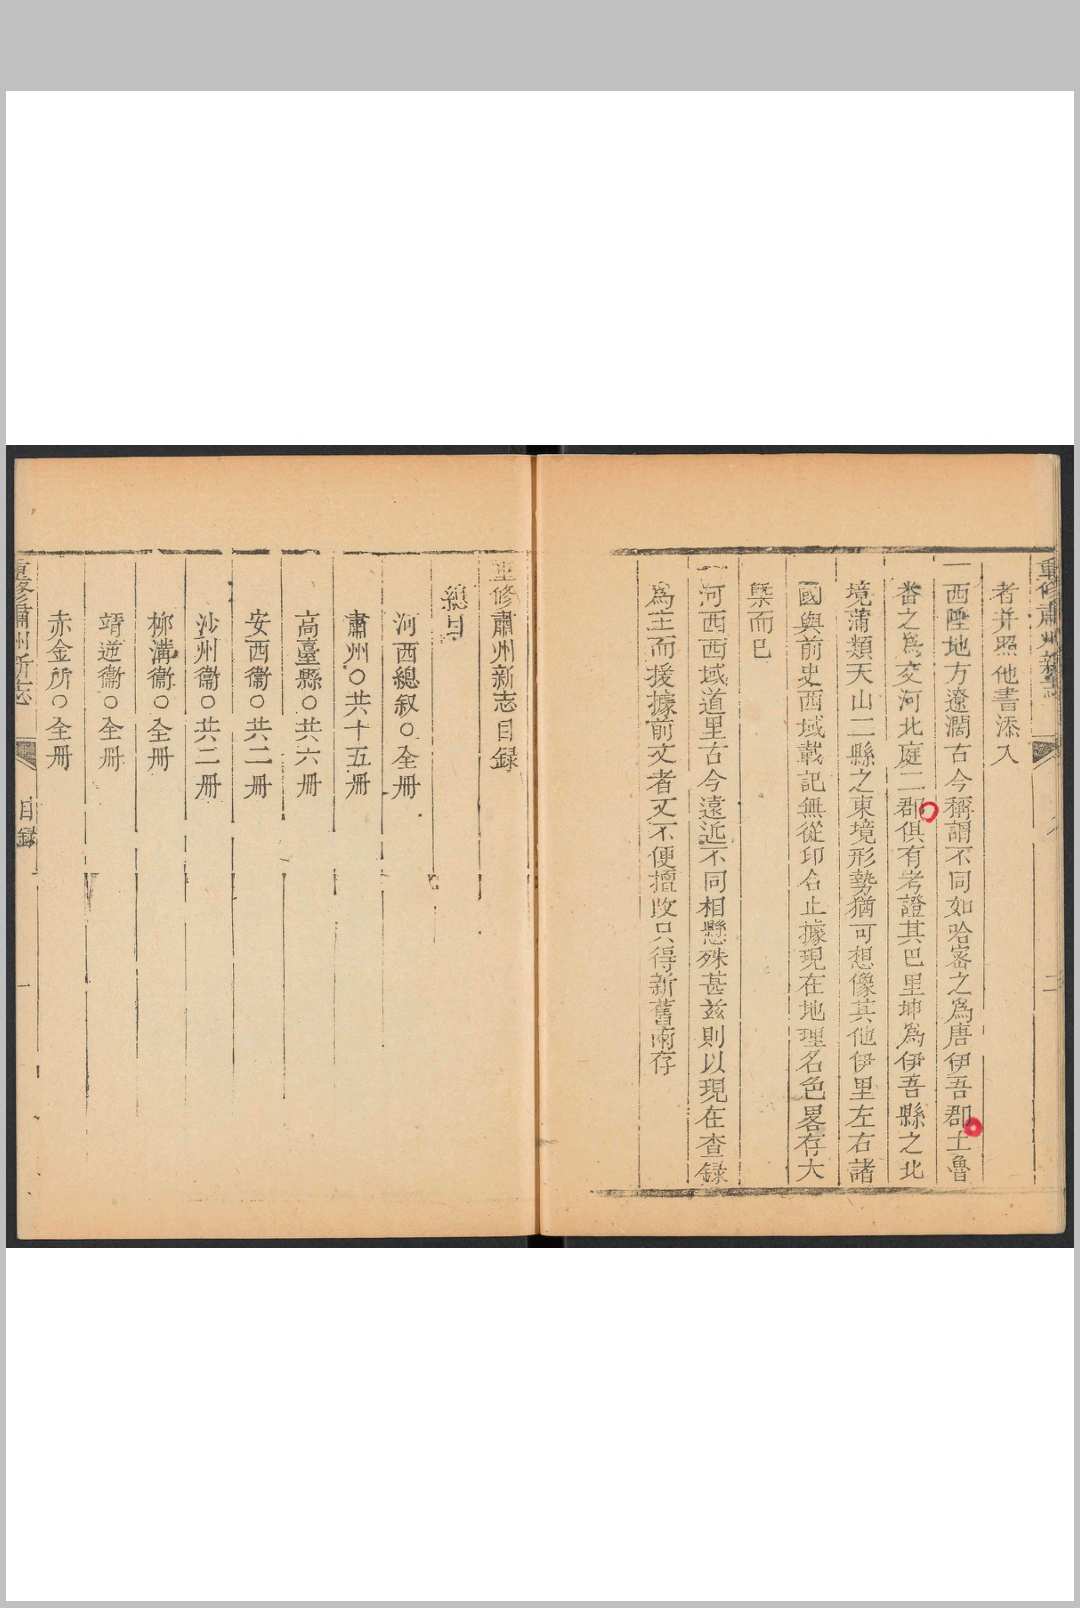 重修肅州新志
者并照他書添入
一西陲地方遼濶古今稱謂不同如哈宻之為唐伊吾郡土魯
番之為交河北庭二郡俱有考證其巴里坤為伊吾縣之北
境蒲類天山二縣之東境形勢猶可想像其他伊里左右諸
國與前史西域載記無從印合止據現在地理名色畧存大
槩而已
一河西西域道里古今遠近不同相懸殊甚兹則以現在查録
為主而援據前文者文不便擅改只得新舊兩存
重修肅州新志目録
總目
河西總叙○全冊
肅州○共十五冊
高臺縣○共六冊
安西衞○共二冊
沙州衞○共二冊
柳溝衞○全冊
靖逆衞○全冊
赤金所○全冊
重修肅州新志 目録 一